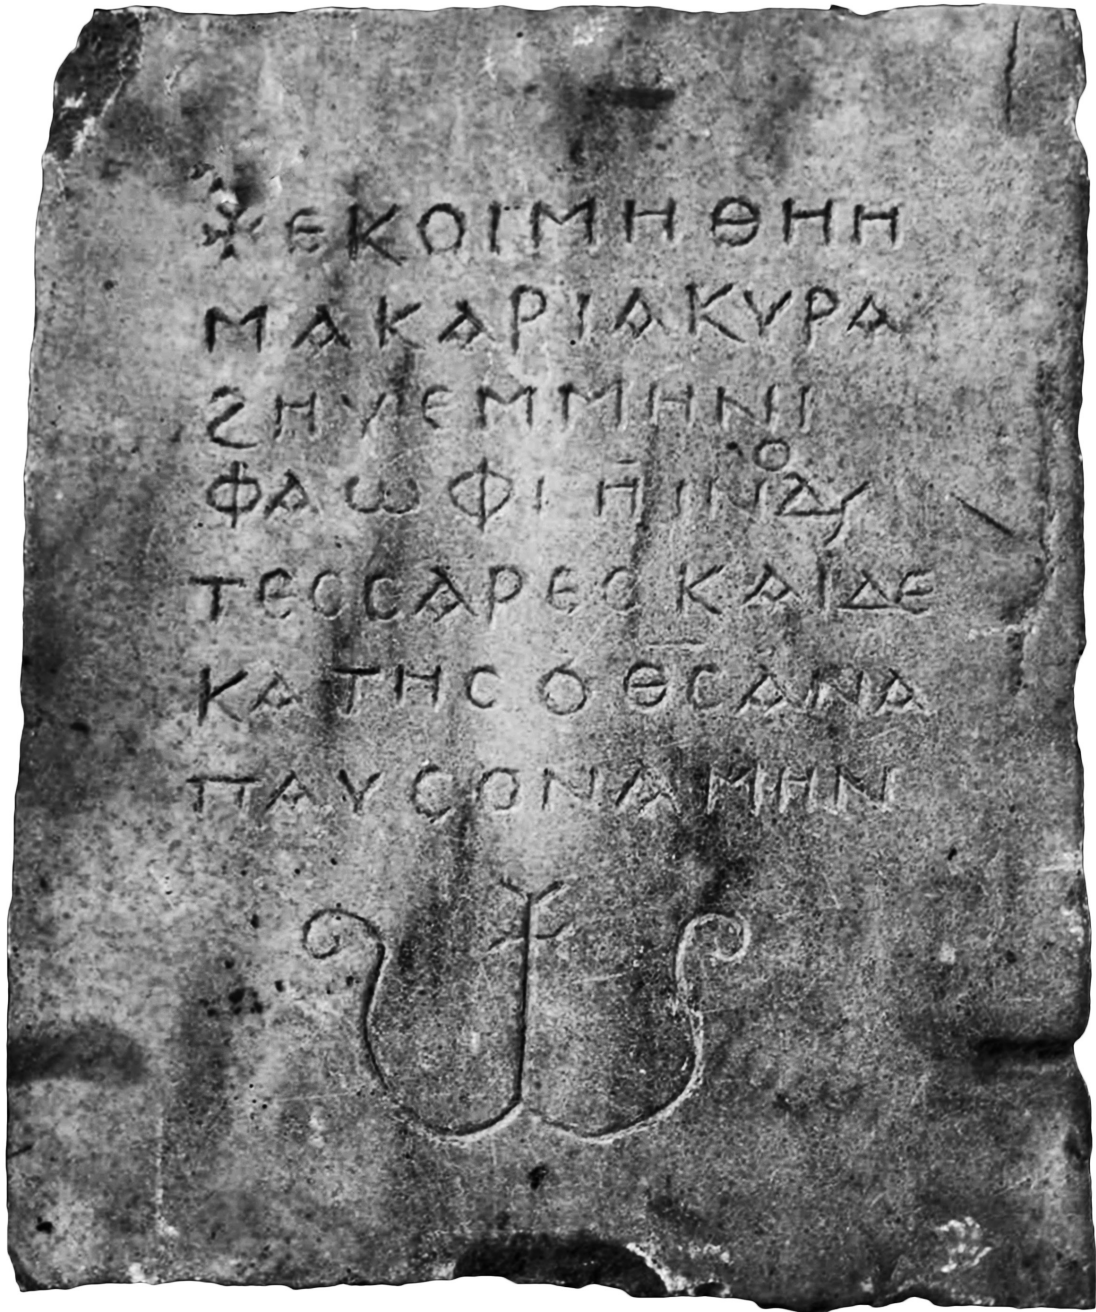 ⳨ ΕΚΟΙΜΗΘΗΗ
ΜΑΚΑΡΙΑΚΥΡΑ
ΖΗΥΕΜΜΗΝΙ
ΦΑΩΦΙ Η̄ ΙΝΔͦϛ
ΤΕϹϹΑΡΕϹΚΑΙΔΕ
ΚΑΤΗϹΟΘ̅Ϲ̅ΑΝΑ
ΠΑΥϹΟΝΑΜΗΝ